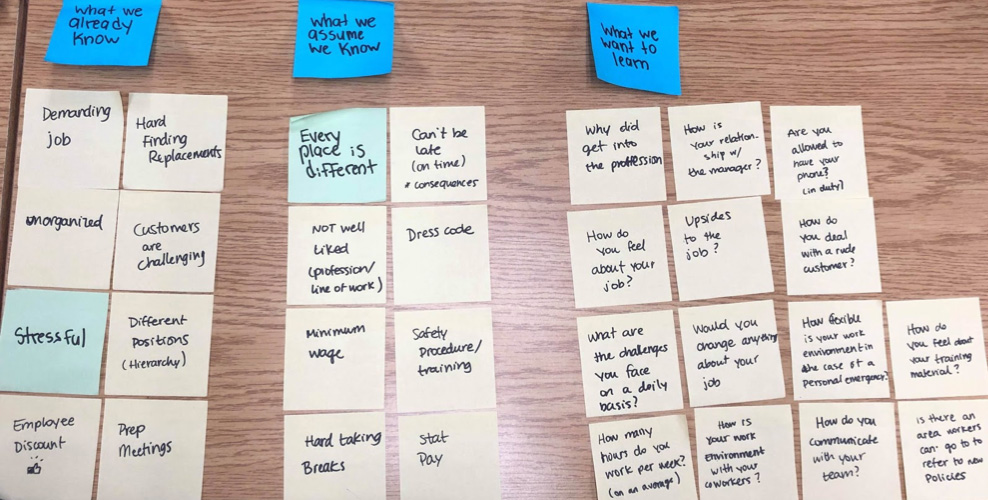 what we
already
Know
Demanding
job
Hard
Finding
Replacements
unorganized
Customers
are
challenging
Stressful
Different
Positions
(Hierarchy)
Employee
Discount
Prep
Meetings
what we
assume
we know
Every
place is
different
Can't be
late
(on time)
* consequences
NOT well
liked
(profession/
line of work)
Dress code
Minimum
wage
Safety
Procedure/
training
Hard taking
Breaks
Stat
Pay
What we
want to
learn
Why did
get into
the proffession
How is
your relation-
ship w/
the manager?
Are you
allowed to
have your
phone?
(in duty)
How do
you feel
about your
job?
Upsides
to the
job?
How do
you deal
with a rude
customer?
What are
the challenges
you face
on a daily
basis?
Would you
change anything
about your
job
How flexible
is your work
environment in
the case of a
personal emergency?
How do
you feel about
your training
material?
How many
hours do you
work per week?
(on an average)
How is
your work
environment
with your
coworkers?
How do you
communicate
with your
team?
is there an
area workers
can go to to
refer to new
Policies